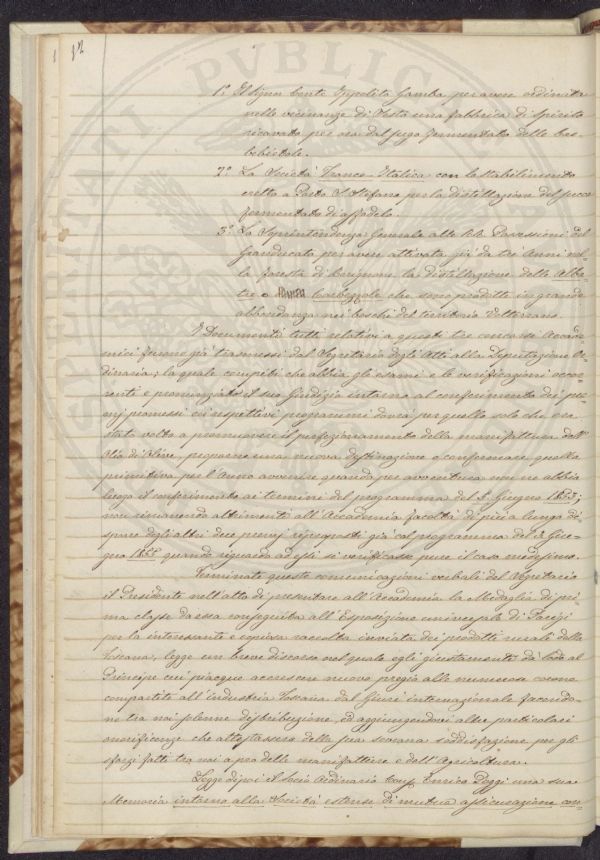 12
1°. Il Signor Conte Ippolito Gamba per avere ordinata
nelle vicinanze di Testa una fabbrica di Spirito
ricavato per ora dal sugo fermentato delle Bar-
bebietole.
2°. La Società Franco-Italica con lo stabilimento
eretto a Porto S. Stefano per la distillazione del succo
fermentato di affodelo.
3°. La Soprintendenza Generale alle RR. Possessioni del
Granducato per avere attivata già da tre Anni nel-
la foresta di Berignone la distillazione delle Alba-
tre o Corbezzole che sono prodotte in grande
abbondanza nei boschi del territorio Volterrano.
I Documenti tutti relativi a questi tre concorsi Accade-
mici furono già trasmessi dal Segretario degli Atti alla Deputazione Or-
dinaria; la quale compiti che abbia gli esami e le verificazioni occor-
renti e pronunziato il suo Giudizio intorno al conferimento dei pre-
mj promessi coi rispettivi programmi dovrà per quello solo che era
stato volto a promuovere il perfezionamento della manifattura dell'
Olio di Olive, proporne una nuova destinazione o confermare quella
primitiva per l'Anno avvenire quando per avventura non ne abbia
luogo il conferimento ai termini del programma del 3. Giugno 1855;
non rimanendo altrimenti all'Accademia facoltà di più a lungo di-
sporre degli altri due premj ripropost i già col programma del 3 Giu-
gno 1855 quando riguardo ad essi si verificasse pure il caso medesimo.
Terminate queste comunicazioni verbali del Segretario
il Presidente nell'atto di presentare all'Accademia la Medaglia di pri-
ma classe da essa conseguita all'Esposizione universale di Parigi
per la interessante e copiosa raccolta inviata dei prodotti rurali della
Toscana, legge un breve discorso nel quale egli giustamente dà lode al
Principe cui piacque accrescere nuovo pregio alle numerose corone
compartite all'industria Toscana dal Giurì internazionale facendo-
ne tra noi solenne distribuzione, ed aggiungendovi altre particolari
onorificenze che attestassero della sua sovrana soddisfazione per gli
sforzi fatti tra noi a pro delle manifatture e dell'Agricoltura.
Legge dipoi il Socio Ordinario Enrico Poggi una sua
Memoria intorno alla Società estense di mutua assicurazione con-